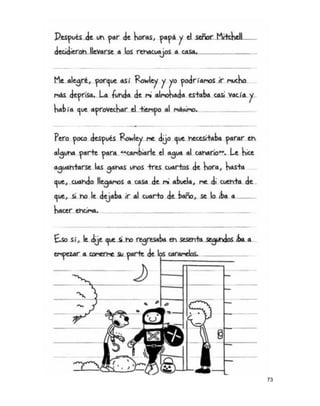 Después de un par de horas, papá y el señor Mitchell
decidieron llevarse a los renacuajos a casa.
Me alegré, porque así Rowley y yo podríamos ir mucho
más deprisa. La funda de mi almohada estaba casi vacía y
había que aprovechar el tiempo al máximo.
Pero poco después Rowley me dijo que necesitaba parar en
alguna parte para «cambiarle el agua al canario». Le hice
aguantarse las ganas unos tres cuartos de hora, hasta
que, cuando llegamos a casa de mi abuela, me di cuenta de
que, si no le dejaba ir al cuarto de baño, se lo iba a
hacer encima.
Eso sí, le dije que si no regresaba en sesenta segundos iba a
empezar a comerme su parte de los caramelos.
73